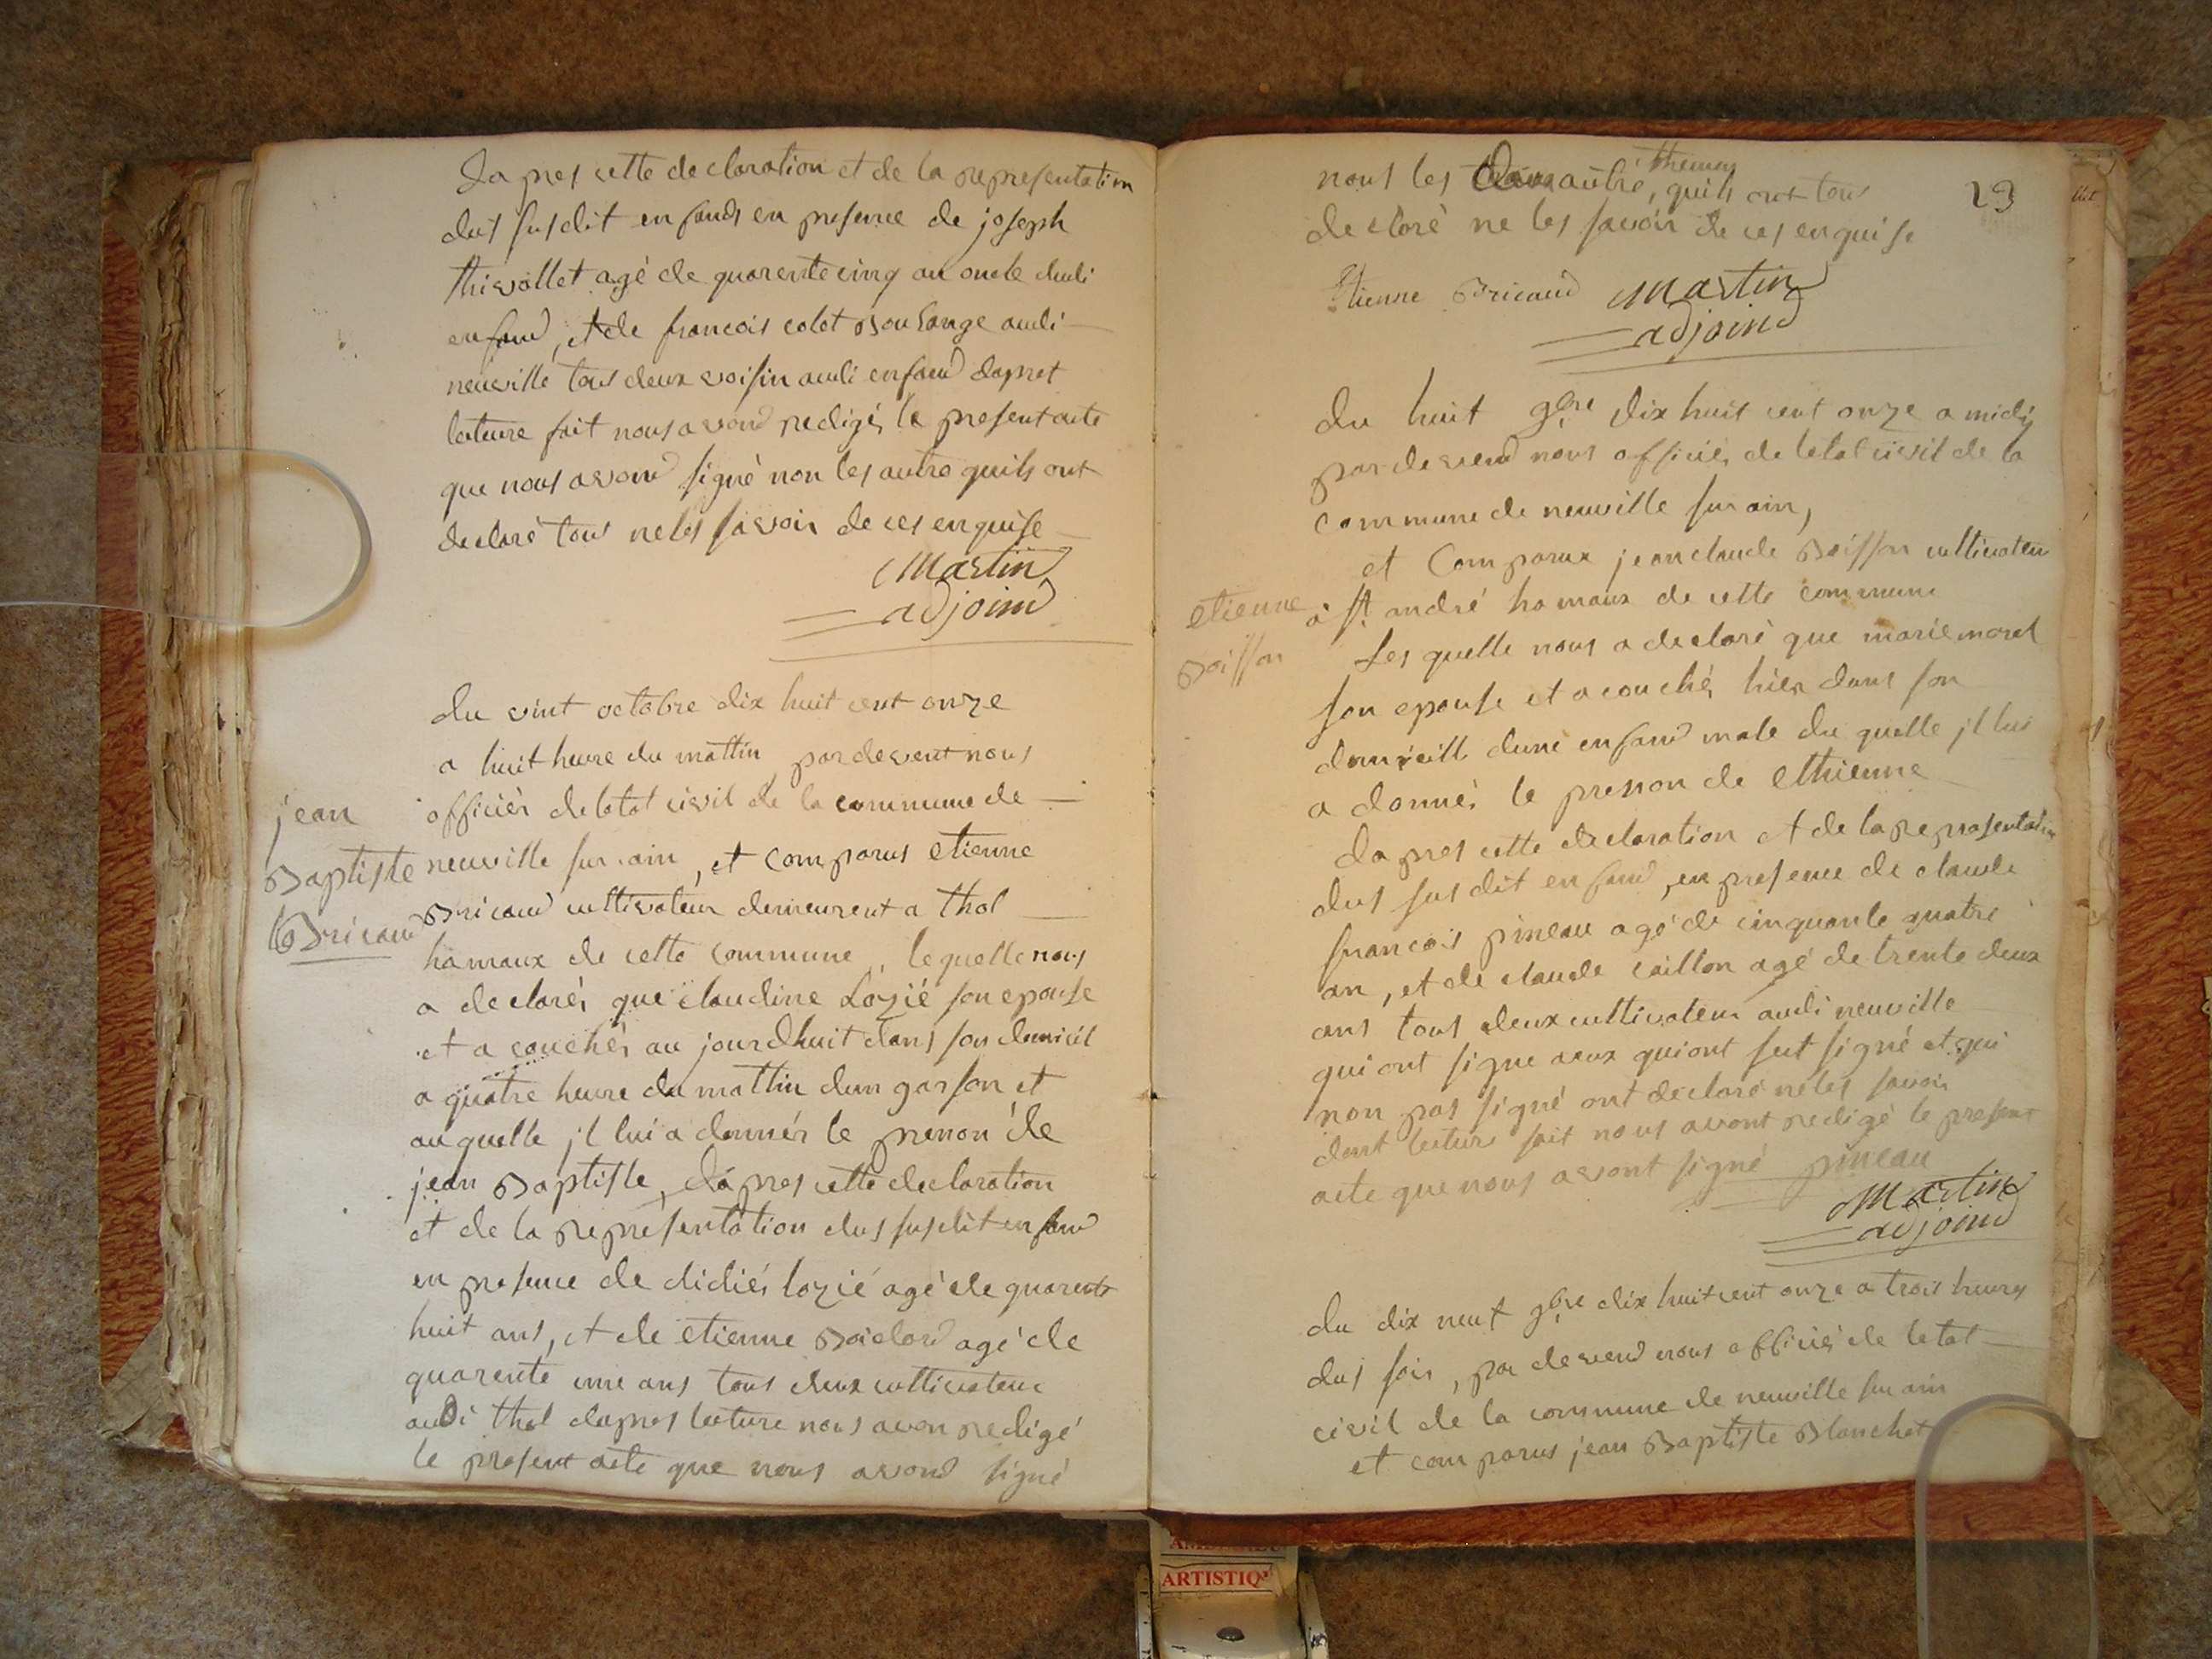 dapres cette declaration et de la representation
dus susdit enfands en presence de joseph
thivollet agé de quarente cinq an oncle dudi
enfand, et de francois colet Boulange audi
neuville tous deux voisin audi enfand dapret
lecture fait nous avond redigé le present acte
que nous avond signé non les autre quils ont
declaré tous ne les savoir de ces enquise
Martin
adjoind
du vint octobre dix huit cent onze
a huit heure du mattin pardevent nous
jean
officier de letat civil de la commune de
Baptiste
neuville sur ain, et comparus etienne
Bricaud
Bricaud cultivateur demeurent a thol
hamaux de cette commune, lequelle nous
a declarér que claudine Lozié son epouse
et a couchér au jourdhuit dans son domicil
a quatre heure du mattin dun garson et
auquelle jl lui a donnér le prenon de
jean Baptiste, dapres cette declaration
et de la representation dus susdit enfand
en presence de didiér lozié agé de quarente
huit ans, et de etienne agé de
quarente une ans tous deux cultivateur
audi thol dapres lecture nous avon redigé
le present acte que nous avond signé
23
themoy
nous les autre, quils ont tous
declaré ne les savoir de ces enquise
Etienne Bricaud Martin
adjoind
du huit 9bre dix huit cent onze a midy
pardevend nous officiér de letat civil de la
commune de neuville sur ain,
et Comparux jean claude Boisson cultivateu
etienne
Boisson
à St andré hamaux de cette commune
Les quelle nous a declaré que marie morel
son epouse et a couchér hier dans son
domicill dune enfand male du quelle jl lui
a donnér le prenon de Ethienne
dapres cette declaration et de la representation
dus susdit enfand, en presence de claude
francois pineau agé de cinquante quatre
an, et de claude caillon agé de trente deux
ans tous deux cultivateur audi neuville
qui ont signe ceux qui ont seut signé et qui
non pas signé ont declaré ne les savoir
dont lecture fait nous avont redigé le present
acte que nous avont signé pineau
Martin
adjoind
du dix neuf 9bre dix huit cent onze a trois heures
dus soir, par devend nous officiér de letat
civil de la commune de neuville sur ain
et comparus jean Baptiste Blanchet
ARTISTIQ